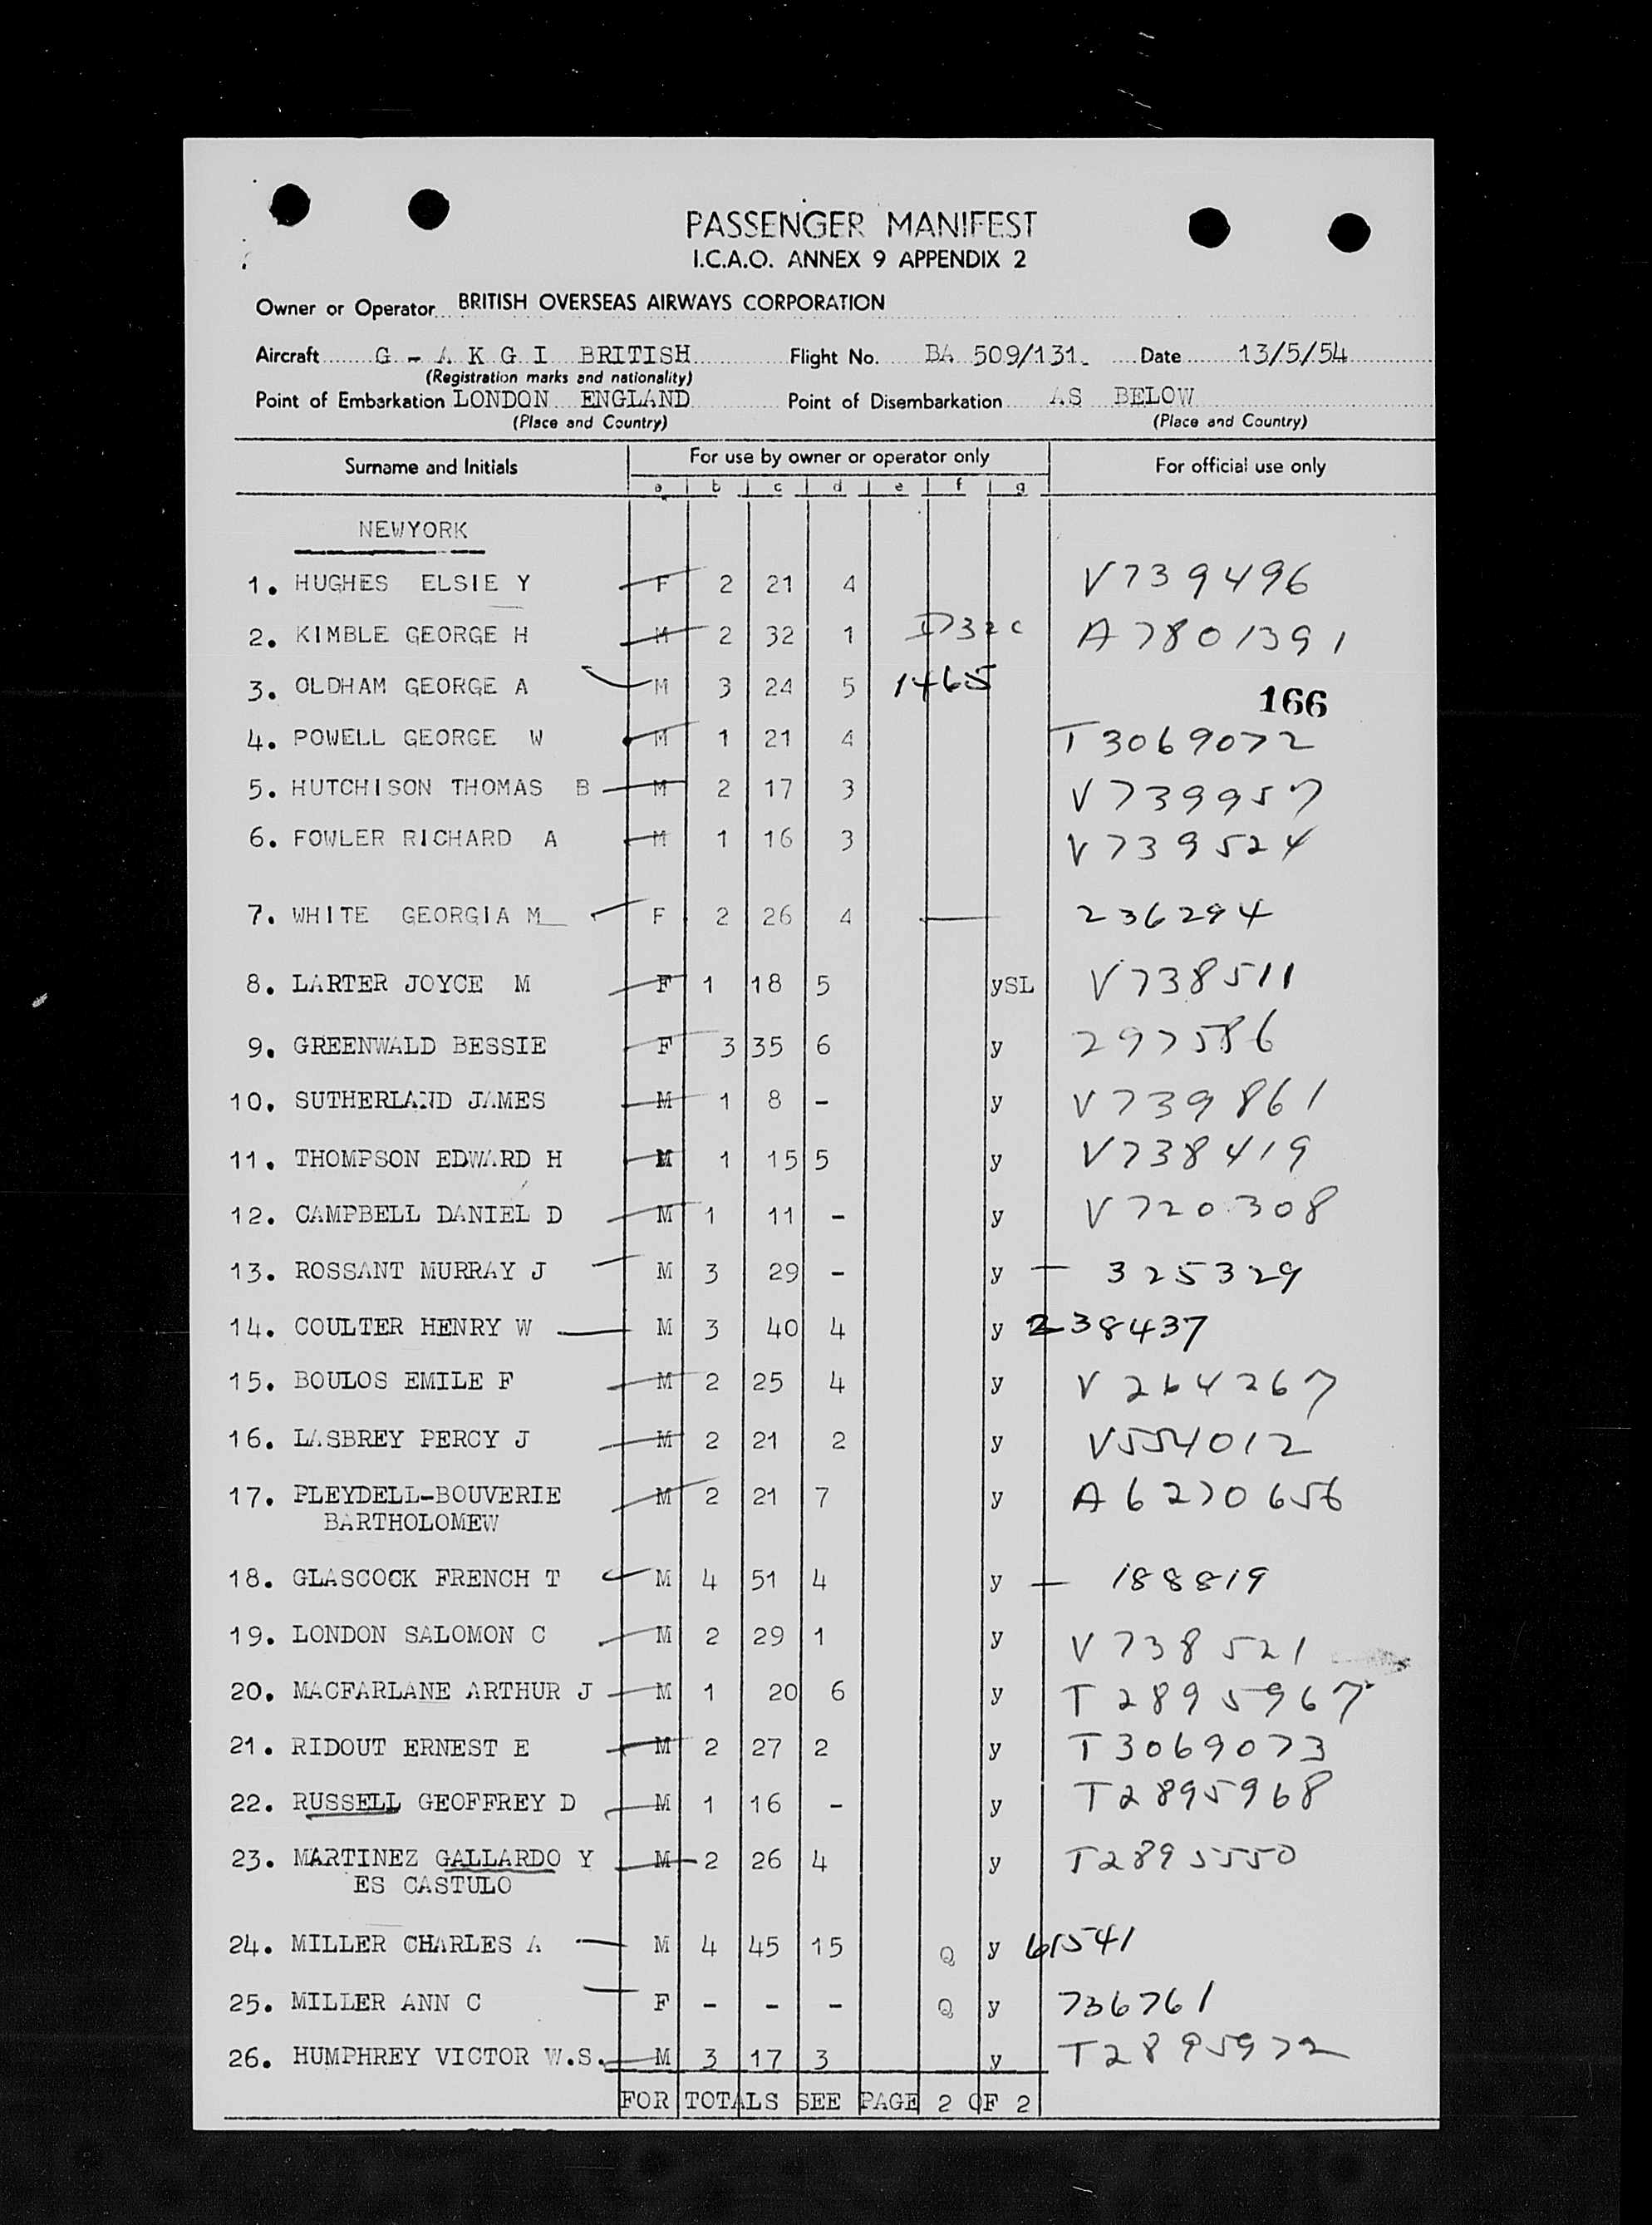 PASSENGER MANIFEST
I.C.A.O. ANNEX 9 APPENDIX 2
Owner or Operator BRITISH OVERSEAS AIRWAYS CORPORATION
Aircraft G - A K G I BRITISH Flight No. BA 509/131. Date 13/5/54
(Registration marks and nationality)
Point of Embarkation LONDON ENGLAND Point of Disembarkation AS BELOW
(Place and Country) (Place and Country)
Surname and Initials For use by owner or operator only For official use only
a b c d e f g
NEWYORK
1. HUGHES ELSIE Y F 2 21 4 V739496
2. KIMBLE GEORGE H M 2 32 1 A7801391
3. OLDHAM GEORGE A M 3 24 5 1465
166
4. POWELL GEORGE W M 1 21 4 T3069072
5. HUTCHISON THOMAS B M 2 17 3 V739957
6. FOWLER RICHARD A M 1 16 3 V739524
7. WHITE GEORGIA M F 2 26 4 236294
8. LARTER JOYCE M F 1 18 5 ySL V738511
9. GREENWALD BESSIE F 3 35 6 y 297586
10. SUTHERLAND JAMES M 1 8 - y V739861
11. THOMPSON EDWARD H M 1 15 5 y V738419
12. CAMPBELL DANIEL D M 1 11 - y V720308
13. ROSSANT MURRAY J M 3 29 - y 325329
14. COULTER HENRY W M 3 40 4 y 238437
15. BOULOS EMILE F M 2 25 4 y V264267
16. LASBREY PERCY J M 2 21 2 y V554012
17. PLEYDELL-BOUVERIE M 2 21 7 y A6270656
BARTHOLOMEW
18. GLASCOCK FRENCH T M 4 51 4 y 188819
19. LONDON SALOMON C M 2 29 1 y V738521
20. MACFARLANE ARTHUR J M 1 20 6 y T2895967
21. RIDOUT ERNEST E M 2 27 2 y T3069073
22. RUSSELL GEOFFREY D M 1 16 - y T2895968
23. MARTINEZ GALLARDO Y M 2 26 4 y T2895550
ES CASTULO
24. MILLER CHARLES A M 4 45 15 Q y 61541
25. MILLER ANN C F - - - Q y 736761
26. HUMPHREY VICTOR W.S. M 3 17 3 y T2895972
FOR TOTALS SEE PAGE 2 OF 2